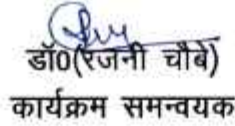 डॉ0(रजनी चौबे)
कार्यक्रम समन्वयक